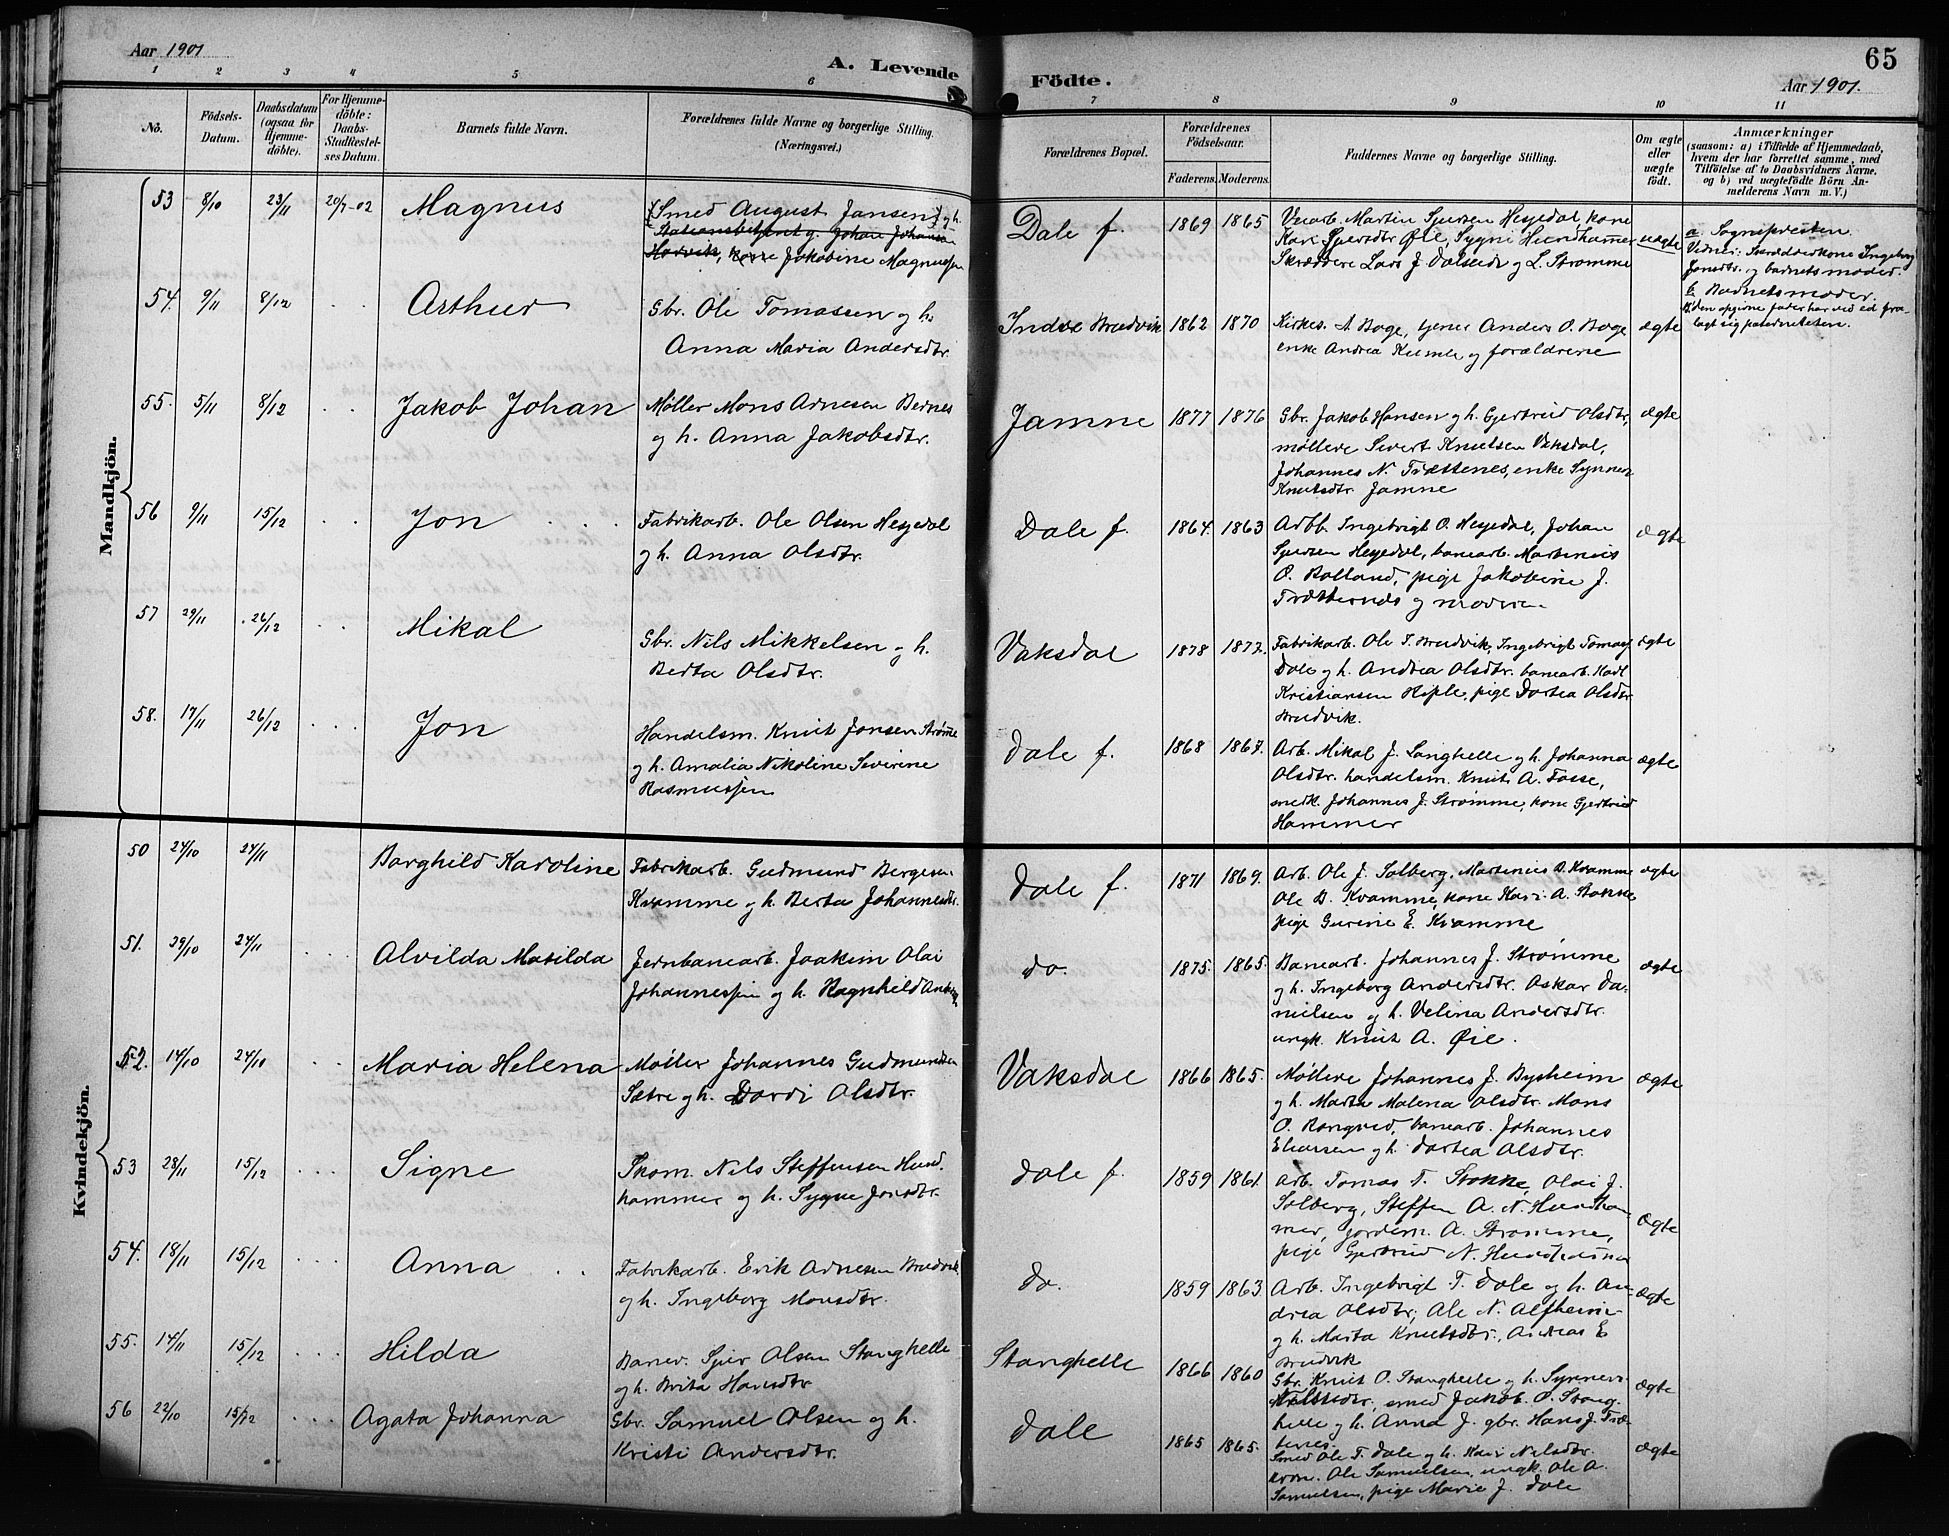 Aar 1901
A. Levende Födte.
65
Aar 1901.
1 2 3 4 5 6 7 8 9 10 11
No.
Födsels-Datum.
Daabsdatum (ogsaa for Hjemme-döbte).
For Hjemme-döbte: Daabs-Stadfæstel-ses Datum.
Barnets fulde Navn.
Forældrenes fulde Navne og borgerlige Stilling. (Næringsvei.)
Forældrenes Bopæl.
Forældrenes Födselsaar.
Faderens. Moderens.
Faddernes Navne og borgerlige Stilling.
Om ægte eller uægte födt.
Anmærkninger
(saasom: a) i Tilfælde af Hjemmedaab,
hvem der har forrettet samme, med
Tilföielse af to Daabsvidners Navne.
og b) ved uægtefödte Börn An-
melderens Navn m. V.)
Mandkjön.
53 8/10 23/11 20/7-02 Magnus
(Smed August Jansen) og h.
Stationsbetjent g. Johan Johansen
Horvik, kone Jakobine Magnussen
Dale f. 1869 1865
Vevarb. Martin Sjursen Hesjedal kone
Kari Sjursdtr Øie, Sygni Hundhammer
Skræddere Lars J. Dalseide og L. Strømme
uægte
a. Sognepresten.
Vidner: Skrædderkone Ingeborg
Jonsdtr. og barnets moder.
b. Barnets moder.
den opgivne fader har ved ed fra-
lagt sig paterniteten.
54. 9/11 8/12 . . Arthur
Gbr. Ole Tomassen og h.
Anna Maria Andersdtr.
Indre Brudvik 1862 1870
Kirkes. A Boge, tjener Anders O. Boge
enke Andrea Kumle og forældrene
ægte
55. 5/11 8/12 . . Jakob Johan
Møller Mons Arnesen Bernes
og h. Anna Jakobsdtr.
Jamne 1877 1876
Gbr. Jakob Hansen og h. Gjertrud Olsdtr,
møllere Sivert Knutsen Vaksdal,
Johannes N. Trættenes, enke Synneva
Knutsdtr Jamne
ægte
56 9/11 15/12 . . Jon
Fabrikarb. Ole Olsen Hesjedal
og h. Anna Olsdtr.
Dale f. 1864. 1863
Arbb. Ingebrigt O. Hesjedal, Johan
Sjursen Hesjedal, banearb. Martinius
O. Bolland, pige Jakobine J.
Trættenes og moderen
ægte
57 29/11 26/12 . . Mikal
Gbr. Nils Mikkelsen og h.
Berta Olsdtr.
Vaksdal 1878 1877.
Fabrikarb. Ole T. Brudvik, Ingebrigt Tomas
Dale og h. Andrea Olsdtr. banearb. Karl
Kristiansen Hople, pige Dortea Olsdtr
Brudvik.
ægte
58. 17/11 26/12 . . . Jon
Handelsm. Knut Jonsen Strømme
og h. Amalia Nikoline Severine
Rasmussen
Dale f. 1868 1867.
Arb. Mikal J. Langhelle og h. Johanna
Olsdtr. handelsm. Knut A. Fosse,
snedk. Johannes J. Strømme, kone Gjertrud
Hammer
ægte
Kvindekjön.
50 24/10 24/11 Borghild Karoline
Fabrikarb. Gudmund Bergesen
Kvamme og h. Berta Johannesdtr.
Dale f. 1871 1869.
Arb. Ole J. Solberg, Martinius B. Kvamme
Ole B. Kvamme, kone Kari A. Stokke
pige Gurine E. Kvamme
ægte
51. 29/10 24/11 . . . Alvilda Matilda
Jernbanearb. Joakim Olai
Johannessen og h. Ragnhild
do. 1875. 1865.
Banearb. Johannes J. Strømme
og h. Ingeborg Andersdtr. Oskar Da-
nielsen og h. Velina Andersdtr.
ungk. Knut A. Øie.
ægte
52. 14/10 24/10 . . . Maria Helena
Møller Johannes Gudmundsen
Sætre og h. Dordi Olsdtr.
Vaksdal 1866 1865.
Møllere Johannes J. Bysheim
og h. Marta Malena Olsdtr. Mons
O. Rongved, banearb. Johannes
Eliassen og h. Dortea Olsdtr.
ægte
53 28/11 15/12 . . . Signe
Skom. Nils Steffensen Hund-
hammer og h. Sygne Jonsdtr.
Dale f. 1859 1861.
Arb. Tomas T. Stokke, Olai J.
Solberg, Steffen A. N. Hundham-
mer, jordem. A. Strømme,
pige Gjertrud N. Hundhammer
ægte
54. 18/11 15/12 . . . Anna
Fabrikarb. Erik Arnesen Brudvik
og h. Ingeborg Monsdtr.
do. 1859 1863
Arb. Ingebrigt T. Dale og h. An-
drea Olsdtr, Ole N. Alfheim
og h. Marta Knutsdtr., Andreas E
Brudvik
ægte
55. 14/11 15/12 . . . Hilda
Banev. Sjur Olsen Stanghelle
og h. Brita Hansdtr
Stanghelle 1866 1860
Gbr. Knut O. Stanghelle og h. Synneva
Nilsdtr, smed Jakob O. Stang-
helle og h. Anna J. gbr. Hans J. Træt-
tenes.
ægte
56 22/10 15/12 . . . Agata Johanna
Gbr. Samuel Olsen og h.
Kristi Andersdtr.
Dale 1865 1865.
Smed Ole T. Dale og h. Kari Nilsdtr.
Ole Samuelsen, ungk. Ole A.
Samuelsen, pige Marie J. Dale
ægte